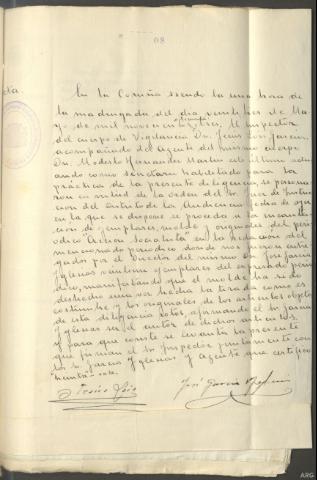 08
da
En la Coruña siendo la una hora de
la madrugada del dia veintitres de Ma-
yo de mil novecientos treinta y tres. El Inspector
del cuerpo de Vigilancia Dn. Jesus
acompañado del Agente del mismo cuerpo
Dn. Modesto Hernandez Martin este ultimo actu-
ando como secretario habilitado para la
práctica de la presente diligencia, se persona-
ron en virtud de la orden del Sr. Juez de Instruc-
cion del distrito de la Audiencia fecha de ayer
en la que se dispone se proceda a la incauta-
cion de ejemplares, molde y originales del peri-
odico "Accion Socialista" en la redaccion del
mencionado periodico donde nos fueron entre-
gados por el Director del mismo Dn José Garcia
Yglesias veintiun ejemplares del expresado perio-
dico, manifestando que el molde ha sido
deshecho una vez hecha la tirada como es
costumbre y los originales de los articulos objeto
de esta diligencia rotos, afirmando el Sr Garcia
Yglesias ser el autor de dichos articulos.
Y para que conste se levanta la presente
que firman el Sr Inspector juntamente con
los Sr. Garcia Yglesias y Agente que certifico
José Garcia Yglesias
ARG